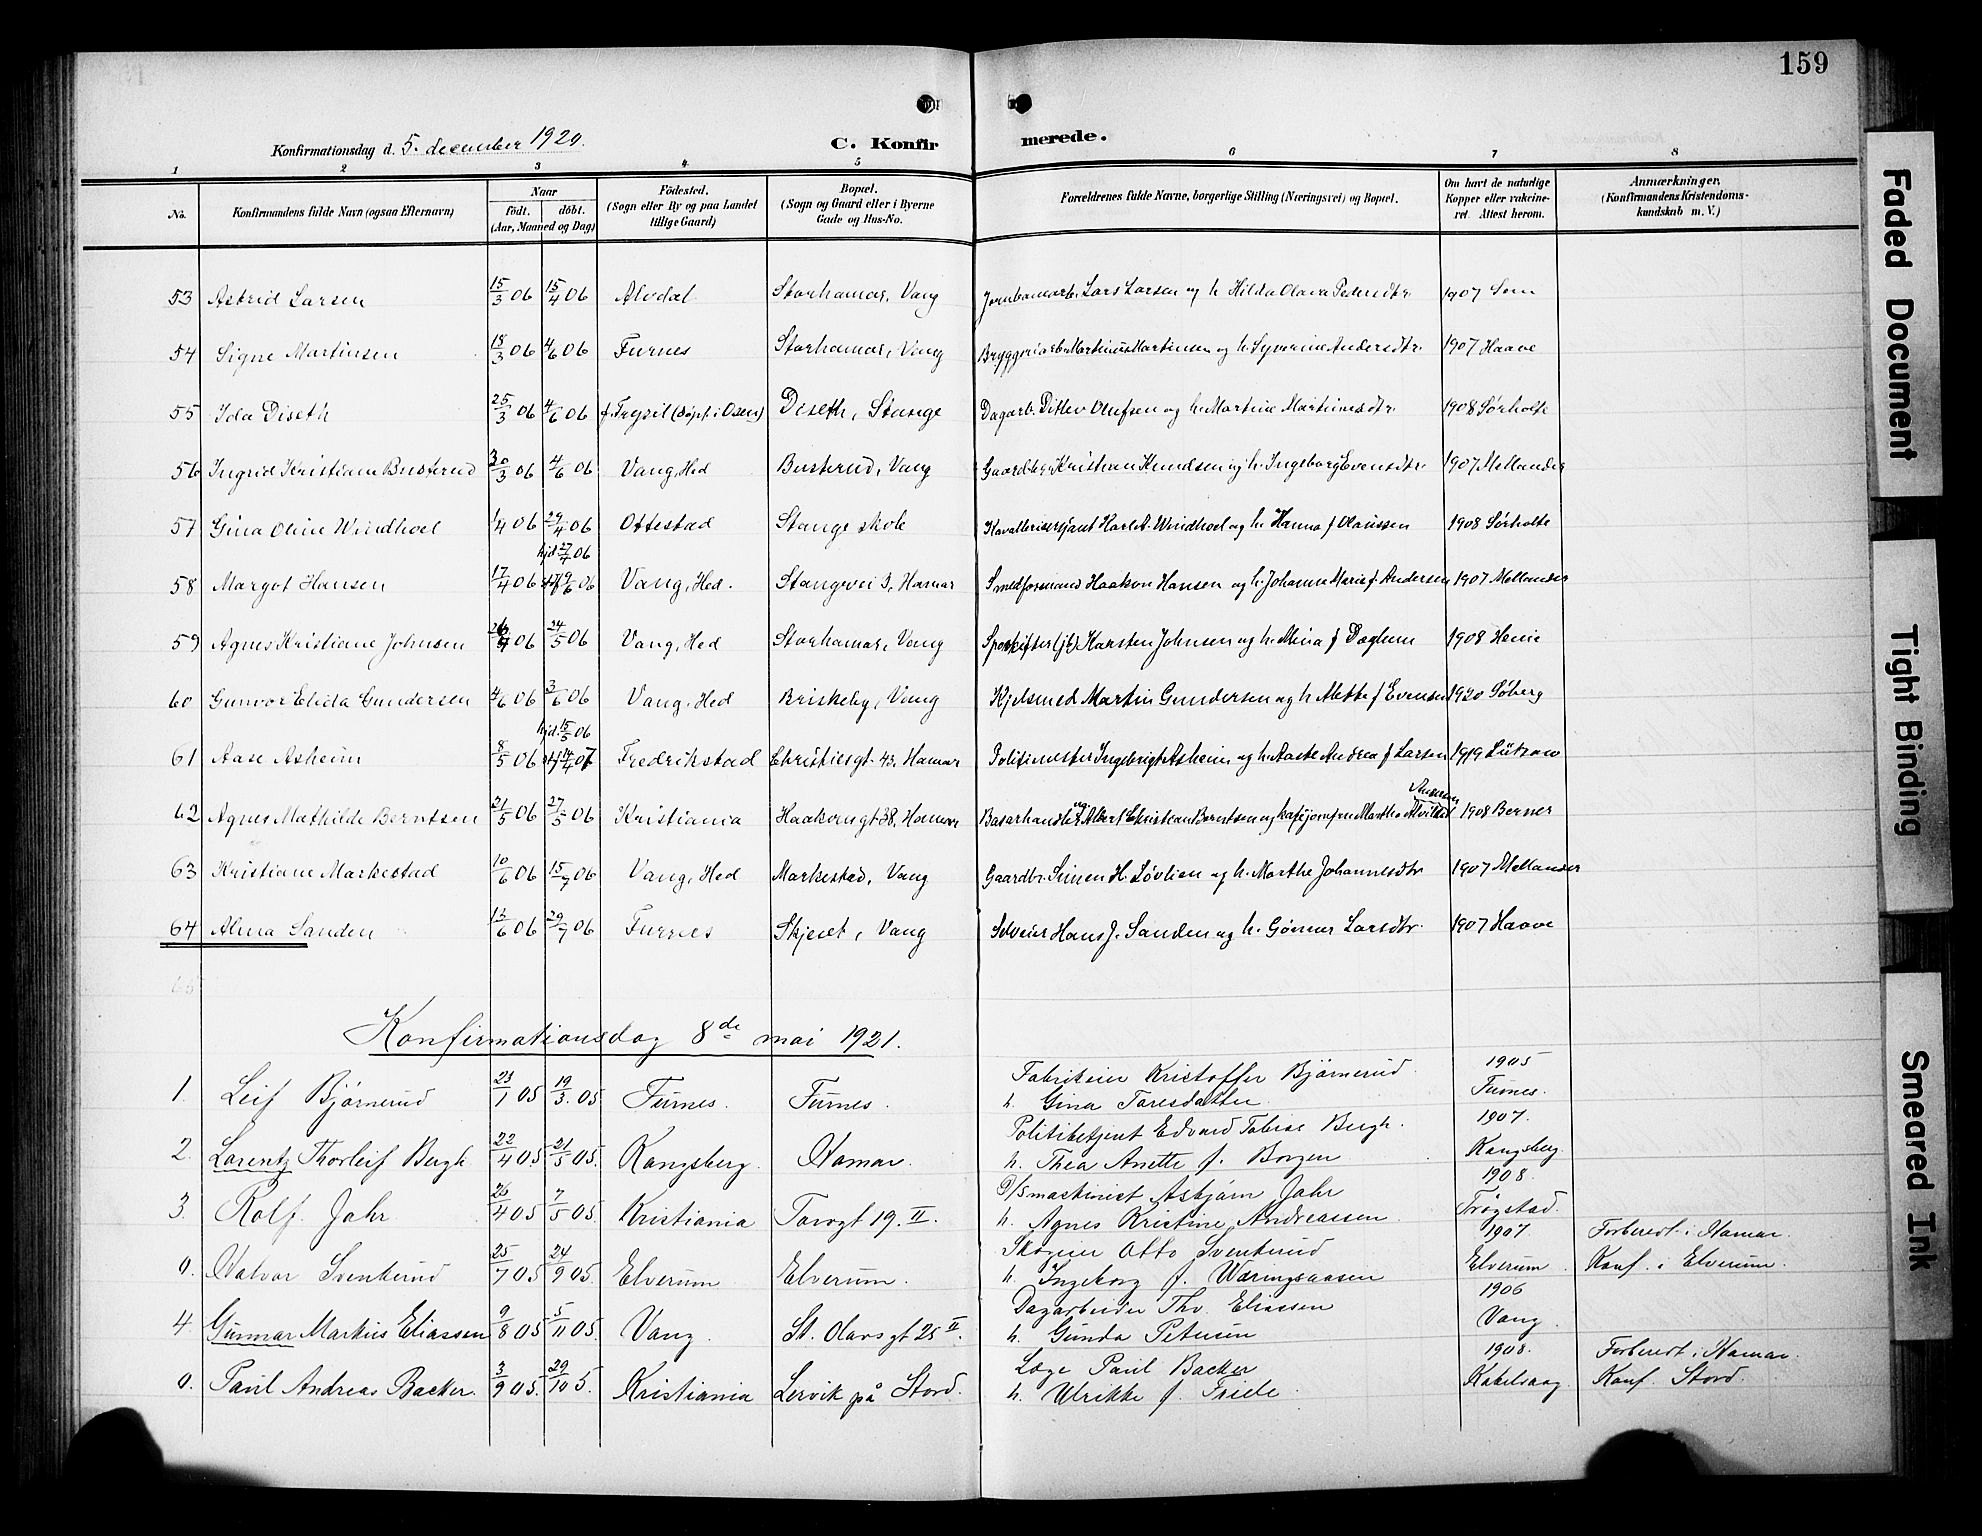 159
Konfirmationsdag d. 5. december 1920.
C. Konfirmerede.
1 2 3 4 5 6 7 8
No. Konfirmandens fulde Navn (ogsaa Efternavn) Naar født. døbt. (Aar, Maaned og Dag) Fødested. (Sogn eller By og paa Landet tillige Gaard) Bopæl. (Sogn og Gaard eller i Byerne Gade og Hus-No. Forældrenes fulde Navne, borgerlige Stilling (Næringsvei) og Bopæl. Om havt de naturlige Kopper eller vakcineret. Attest herom. Anmærkninger. (Konfirmandens Kristendomskundskab m. V.)
53 Astrid Larsen 15/3 06 15/4 06 Alvdal Storhamar, Vang Jernbanearb. Lars Larsen og h. Hilda Olava Pedersdtr. 1907 Sem
54 Signe Martinsen 18/3 06 4/6 06 Furnes Storhamar, Vang Bryggeriarb. Martinus Martinsen og h. Syverine Andersdtr. 1907 Haave
55 Ida Diseth 25/3 06 4/6 06 f. Trysil (døpt i Osen) Diseth, Stange Dagarb. Ditlev Olufsen og h. Martine Martinusdtr. 1908 Sørholte
56 Ingrid Kristiane Busterud 30/3 06 4/6 06 Vang, Hed Busterud, Vang Gaardbr. Kristian Knudsen og h. Ingeborg Evensdtr. 1907 Mellander
57 Gina Oline Windhoel 1/4 06 29/4 06 Ottestad Stange skole Kavallerisersjant Karl A. Windhoel og h. Hanna f. Olaussen 1908 Sørholte
58 Margot Hansen 17/4 06 hjd. 27/4 06 19/6 06 Vang, Hed. Stangevei 3, Hamar Smedformand Haakon Hansen og h. Johanne Marie f. Andersen 1907 Mellander
59 Agnes Kristiane Johnsen 26/4 06 24/5 06 Vang, Hed Storhamar, Vang Sporskifter (jb) Karsten Johnsen og h. Mina f. Døghem 1908 Henie
60 Gunvor Elida Gundersen 4/6 06 3/6 06 Vang, Hed Briskeby, Vang Kjelsmed Martin Gundersen og h. Mette f. Evensen 1920 Søberg
61 Aase Asheim 8/5 06 hjd. 15/5 06 14/4 07 Fredrikstad Christiesgt. 43, Hamar Politimester Ingebrigt Asheim og h. Aaste Andrea f. Larsen 1919 Lützow
62 Agnes Mathilde Berntsen 21/5 06 27/5 06 Kristiania Haakonsgt 38, Hamar Basarhandler Albert Christian Berntsen og kafejomfru Martha Alvilde Andersen 1908 Berner
63 Kristiane Markestad 10/6 06 15/7 06 Vang, Hed Markestad, Vang Gaardbr. Simen H. Løvlien og h. Marthe Johannesdtr 1907 Mellander
64 Alma Sanden 13/6 06 29/7 06 Furnes Skjeset, Vang Selveier Hans J. Sanden og h. Gønner Larsdtr. 1907 Haave
Konfirmationsdag 8de mai 1921.
1. Leif Bjørnerud 23/1 05 19/3 05 Furnes. Furnes. Fabrikeier Kristoffer Bjørnerud 1905
h. Gina Toresdatter Furnes.
2. Lorentz Thorleif Bergh 22/4 05. 21/5 05. Kongsberg. Hamar. Politibetjent Edvard Tobias Bergh. 1907.
h. Thea Anette f. Borgen Kongsberg
3. Rolf Jahr 26/4 05 7/5 05. Kristiania Torvgt 19. II. D/Smaskinist Asbjørn Jahr 1908.
h. Agnes Kristine Andreassen Trøgstad.
0. Halvor Svenkerud 25/7 05 24/9 05. Elverum Elverum. Skogeier Otto Svenkerud 1907. Forberedt i Hamar.
h. Ingeborg f. Wæringsaasen Elverum Konf. i Elverum.
4. Gunnar Markus Eliassen 9/8 05 5/11 05. Vang. St. Olavsgt 25 II. Dagarbeider Thv. Eliassen 1906
h. Gunda Petersen Vang.
0. Paul Andreas Backer. 3/9 05. 29/10 5. Kristiania Lervik på Stord. Læge Paul Backer 1908. Forberedt i Hamar.
h. Ulrikke f. Friele. Kabelvaag Konf. Stord.
Faded Document
Tight Binding
Smeared Ink